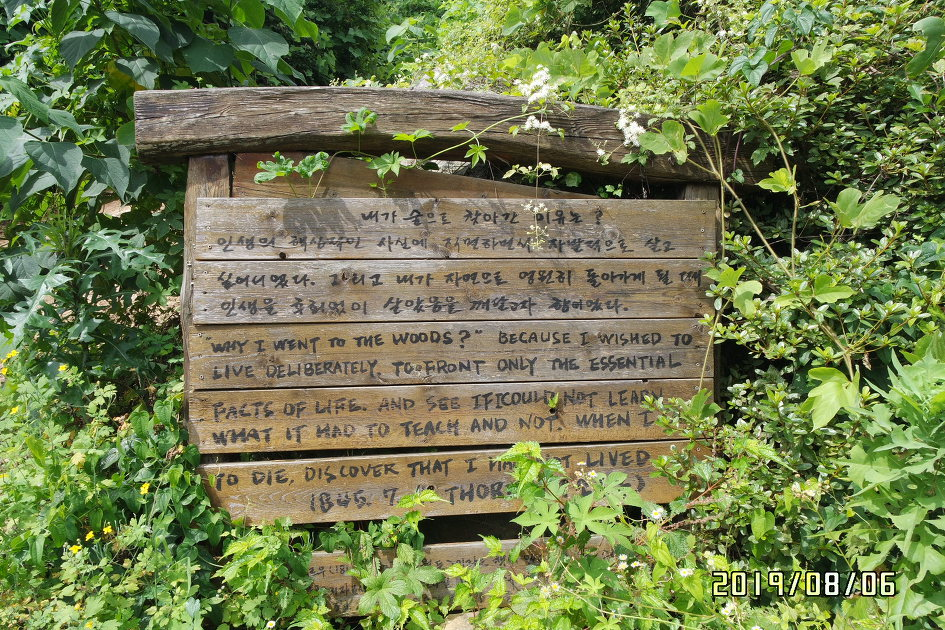 내가 숲으로 찾아간 이유는?
인생의 핵심적인 사실에 직면하면서 자발적으로 살고
싶어서였다. 그리고 내가 자연으로 영원히 돌아가게 될 때
인생을 후회없이 살았음을 깨닫고자 함이었다.
"WHY I WENT TO THE WOODS?" BECAUSE I WISHED TO
LIVE DELIBERATELY, TO FRONT ONLY THE ESSENTIAL
FACTS OF LIFE. AND SEE IF I COULD NOT LEARN
WHAT IT HAD TO TEACH AND NOT, WHEN I
TO DIE, DISCOVER THAT I LIVED
2019/08/06